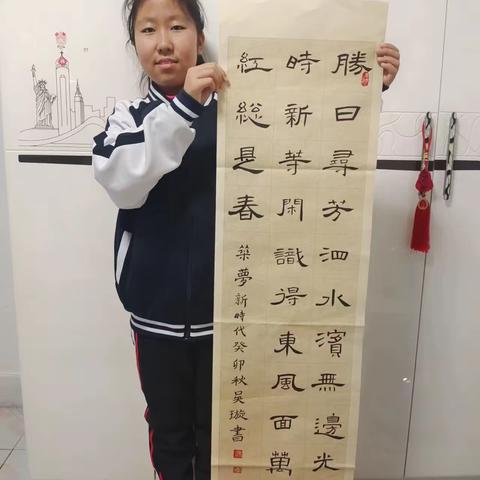 勝日尋芳泗水濱無邊光
時新等閑識得東風面萬
紅総是春
築夢新時代癸卯秋吳璇書